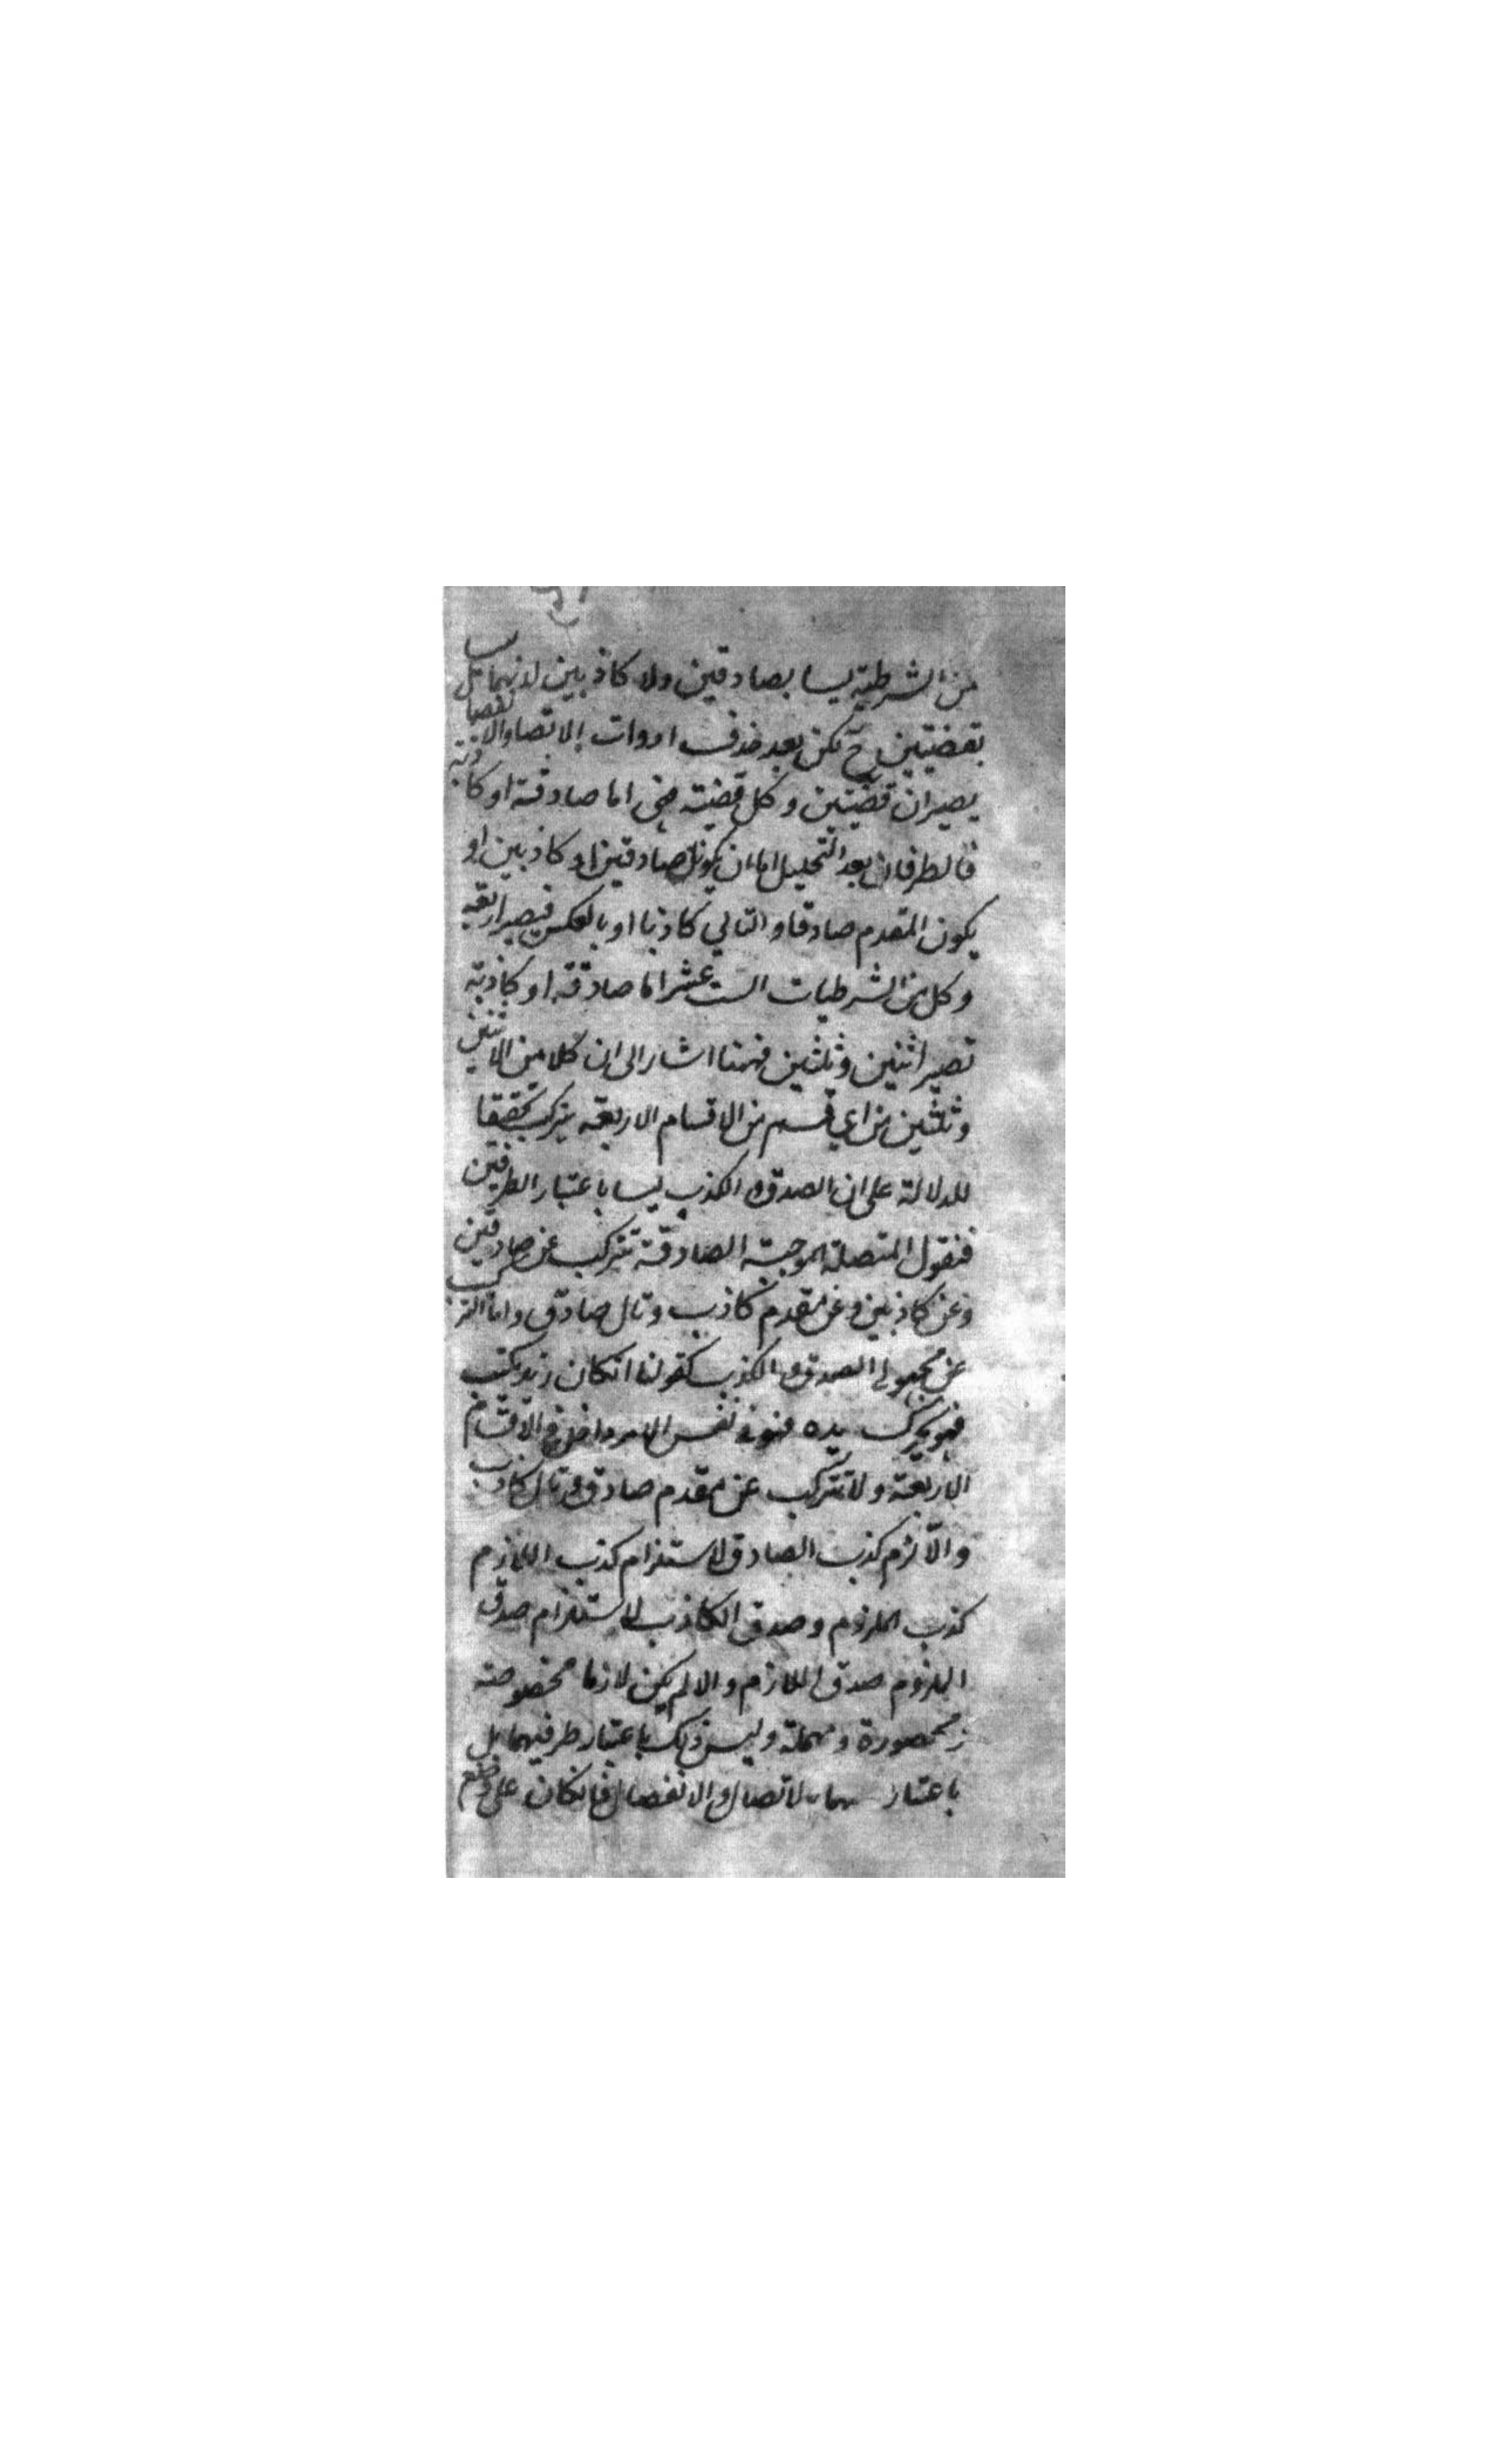 من الشرطية ليسا بصادقين ولا كاذبين لانهما ليسا
بقضيتين ح لكن بعد حذف ادوات الاتصا والانفصا
يصيران قضيتين وكل قضية فهى اما صادقة او كاذبة
فالطرفان بعد التحليل اما ان يكونا صادقين او كاذبين او
يكون المقدم صادقا والتالي كاذبا او بالعكس فيصير اربعة
وكل من الشرطيات الست عشر اما صادقة او كاذبة
تصير اثنين وثلثين فههنا اشار الى ان كلا من الاثنين
وثلثين من اي قسم من الاقسام الاربعة يتركب تحقيقا
للدلالة على ان الصدق والكذب ليسا باعتبار الطرفين
فنقول المتصلة الموجبة الصادقة تتركب عن صادقين
وعن كاذبين وعن مقدم كاذب وتال صادق واما التركب
عن مجهولى الصدق والكذب كقولنا ان كان زيد يكتب
فهو يحرك يده فهو فى نفس الامر داخل فى الاقسام
الاربعة ولا تتركب عن مقدم صادق وتال كاذب
والا لزم كذب الصادق لاستلزام كذب اللازم
كذب الملزوم وصدق الكاذب لاستلزام صدق
الملزوم صدق اللازم والا لم يكن لازما مخصوصة
ومحصورة ومهملة وليس ذلك باعتبار طرفيهما بل
باعتبار الاتصال والانفصال فان كان على وضع